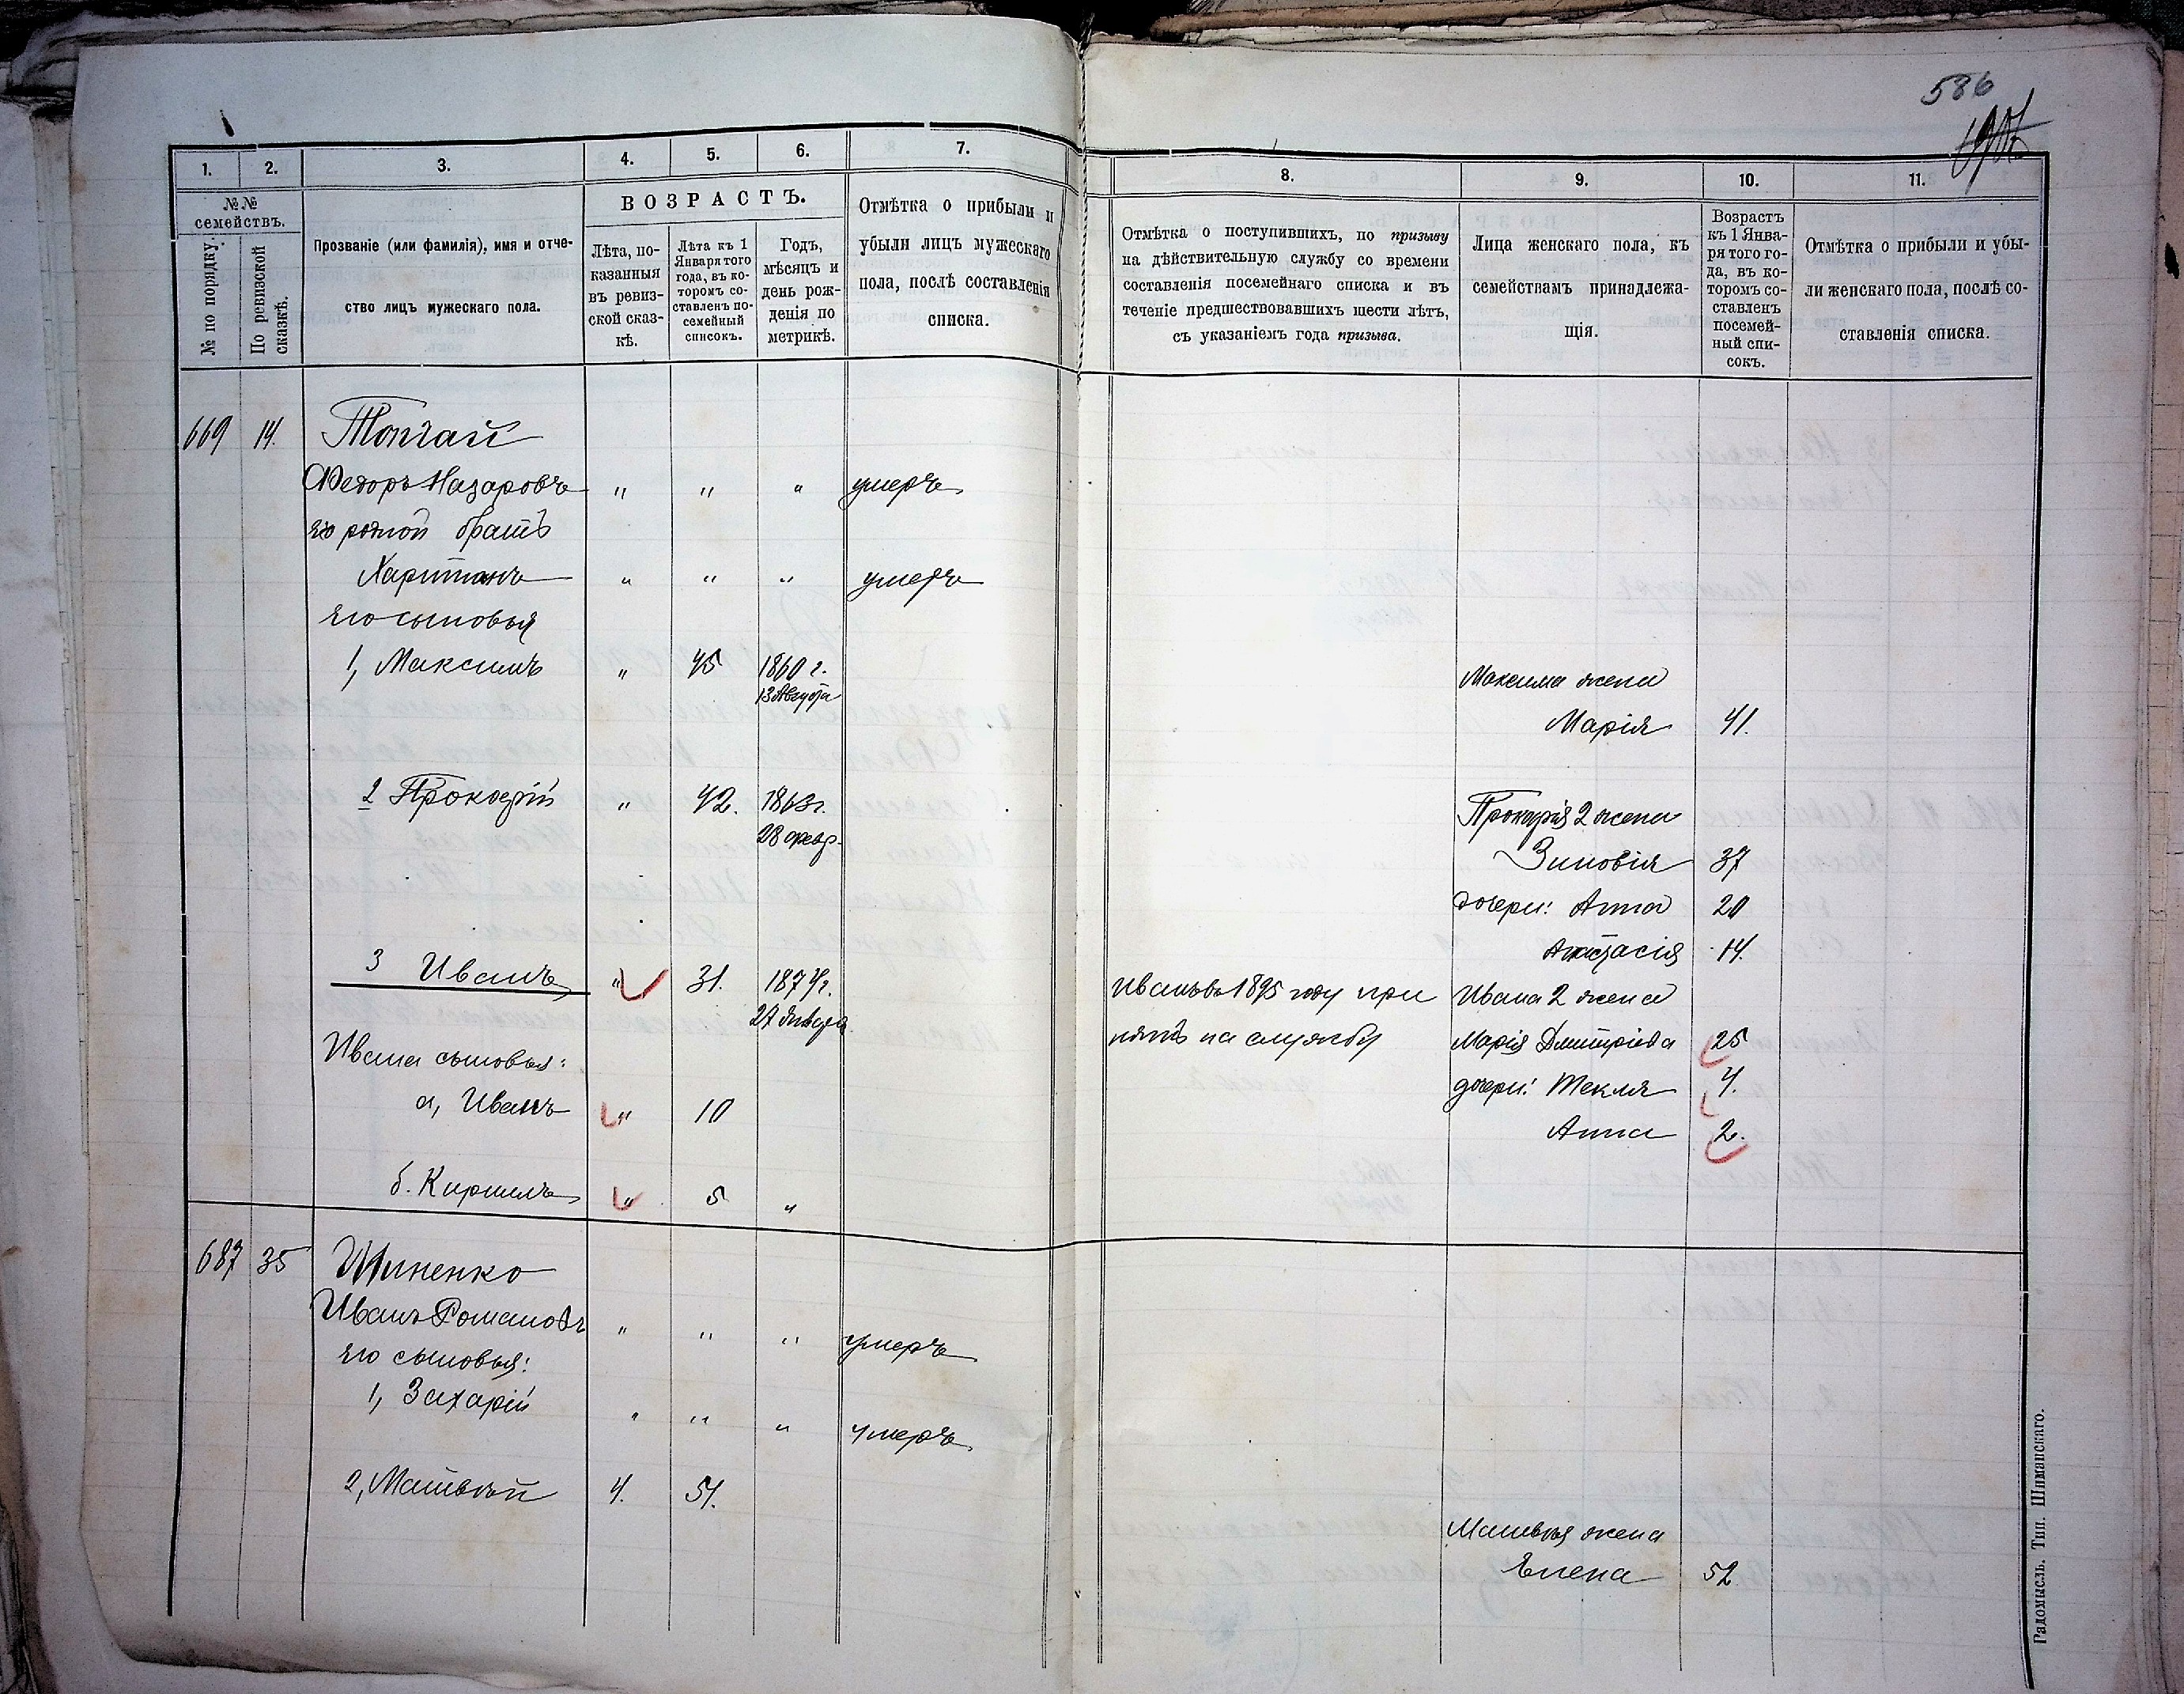 586
1. 2. 3. 4. 5. 6. 7. 8. 9. 10. 11.
№№ семействъ.
№ по порядку.
По ревизской сказкѣ.
Прозваніе (или фамилія), имя и отче-
ство лицъ мужескаго пола.
ВОЗРАСТЪ.
Лѣта, по-
казанныя
въ ревиз-
ской сказ-
кѣ.
Лѣта къ 1
Января того
года, въ ко-
торомъ со-
ставленъ по-
семейный
списокъ.
Годъ,
мѣсяцъ и
день рож-
денія по
метрикѣ.
Отмѣтка о прибыли и
убыли лицъ мужескаго
пола, послѣ составленія
списка.
Отмѣтка о поступившихъ, по призыву
на дѣйствительную службу со времени
составленія посемейнаго списка и въ
теченіе предшествовавшихъ шести лѣтъ,
съ указаніемъ года призыва.
Лица женскаго пола, къ
семействамъ принадлежа-
щія.
Возрастъ
къ 1 Янва-
ря того го-
да, въ ко-
торомъ со-
ставленъ
посемей-
ный спи-
сокъ.
Отмѣтка о прибыли и убы-
ли женскаго пола, послѣ со-
ставленія списка.
669 14. Топчай
Федоръ Назаровъ " " " умеръ
его родной братъ
Харитонъ " " " умеръ
его сыновья
1, Максимъ " 45 1860 г.
13 Августа
Максима жена
Марія 41.
2 Прокофій " 42. 1863 г.
28 февр.
Прокофія 2 жена
Зиновія 37
дочери: Анна 20
Анастасія 14.
3 Иванъ " 31. 1874 г.
27 Января
Иванъ въ 1895 году при
нятъ на службу
Ивана 2 жена
Марія Дмитріева 25
дочери: Текля 4.
Анна 2.
Ивана сыновья:
а, Иванъ " 10
б. Кирилъ " 5 "
687 35 Шиненко
Иванъ Романовъ " " " умеръ
его сыновья:
1, Захарій " " " умеръ
2, Матвѣй 4. 51.
Матвѣя жена
Елена 52
Радомысль. Тип. Шиманскаго.